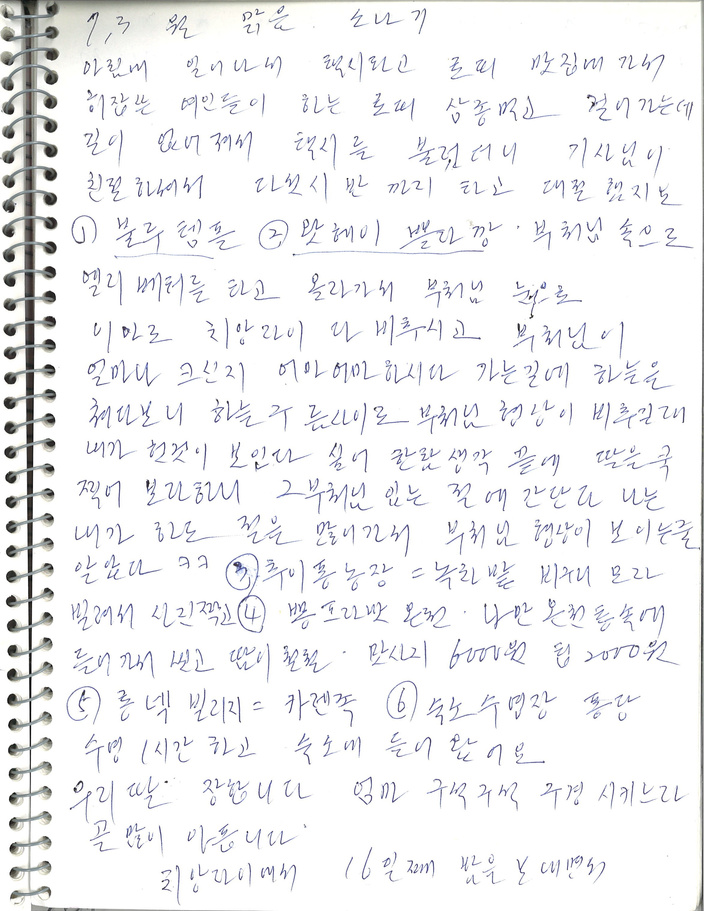 7,3 월 맑음. 소나기
아침에 일어나서 택시타고 로띠 맛집에 가서
히잡쓰는 여인들이 하는 로띠 삼종먹고 걸어가는데
길이 없어져서 택시를 불렀더니 기사님이
친절하셔서 다섯시 반 까지 타고 대절 했지요
① 블루템플 ② 왓헤이 쁠라깡. 부처님 속으로
엘리베터를 타고 올라가서 부처님 눈으로
이마로 치앙라이 다 비추시고 부처님이
얼마나 크신지 어마어마하시다 가는길에 하늘을
쳐다보니 하늘 구름사이로 부처님 형상이 비추길래
내가 헛것이 보인다 싶어 한참생각 끝에 딸을 쿡
찍어 보라하니 그부처님 있는 절에 간단다 나는
내가 하도 절을 많이가서 부처님 형상이 보이는줄
알았다 ㅋㅋ ③ 추이퐁농장 = 녹차밭 비키니 모자
빌려서 사진찍고 ④ 뽕프라밧 온천. 나만 온천통속에
들어가서 쉬고 땀이 철철. 맛사지 6000원 팁 2000원
⑤ 롱넥 빌리지 = 카렌족 ⑥ 숙소수영장 퐁당
수영 1시간 하고 숙소에 들어 왔어요
우리딸 장합니다 엄마 구석구석 구경 시키느라
골 많이 아픕니다.
치앙라이에서 16일째 밤을 보내면서